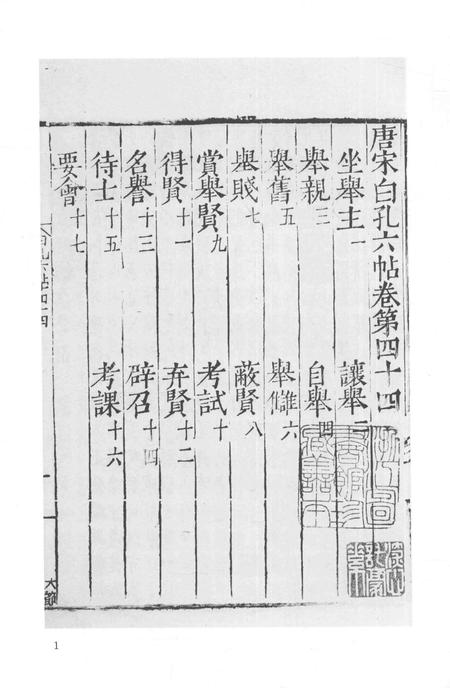 唐宋白孔六帖卷第四十四
坐舉主一 讓舉二
舉親三 自舉四
舉舊五 舉讎六
舉賤七 蔽賢八
賞舉賢九 考試十
得賢十一 弃賢十二
名譽十三 辟召十四
待士十五 考課十六
要會十七
白孔六帖四十四
大節
1